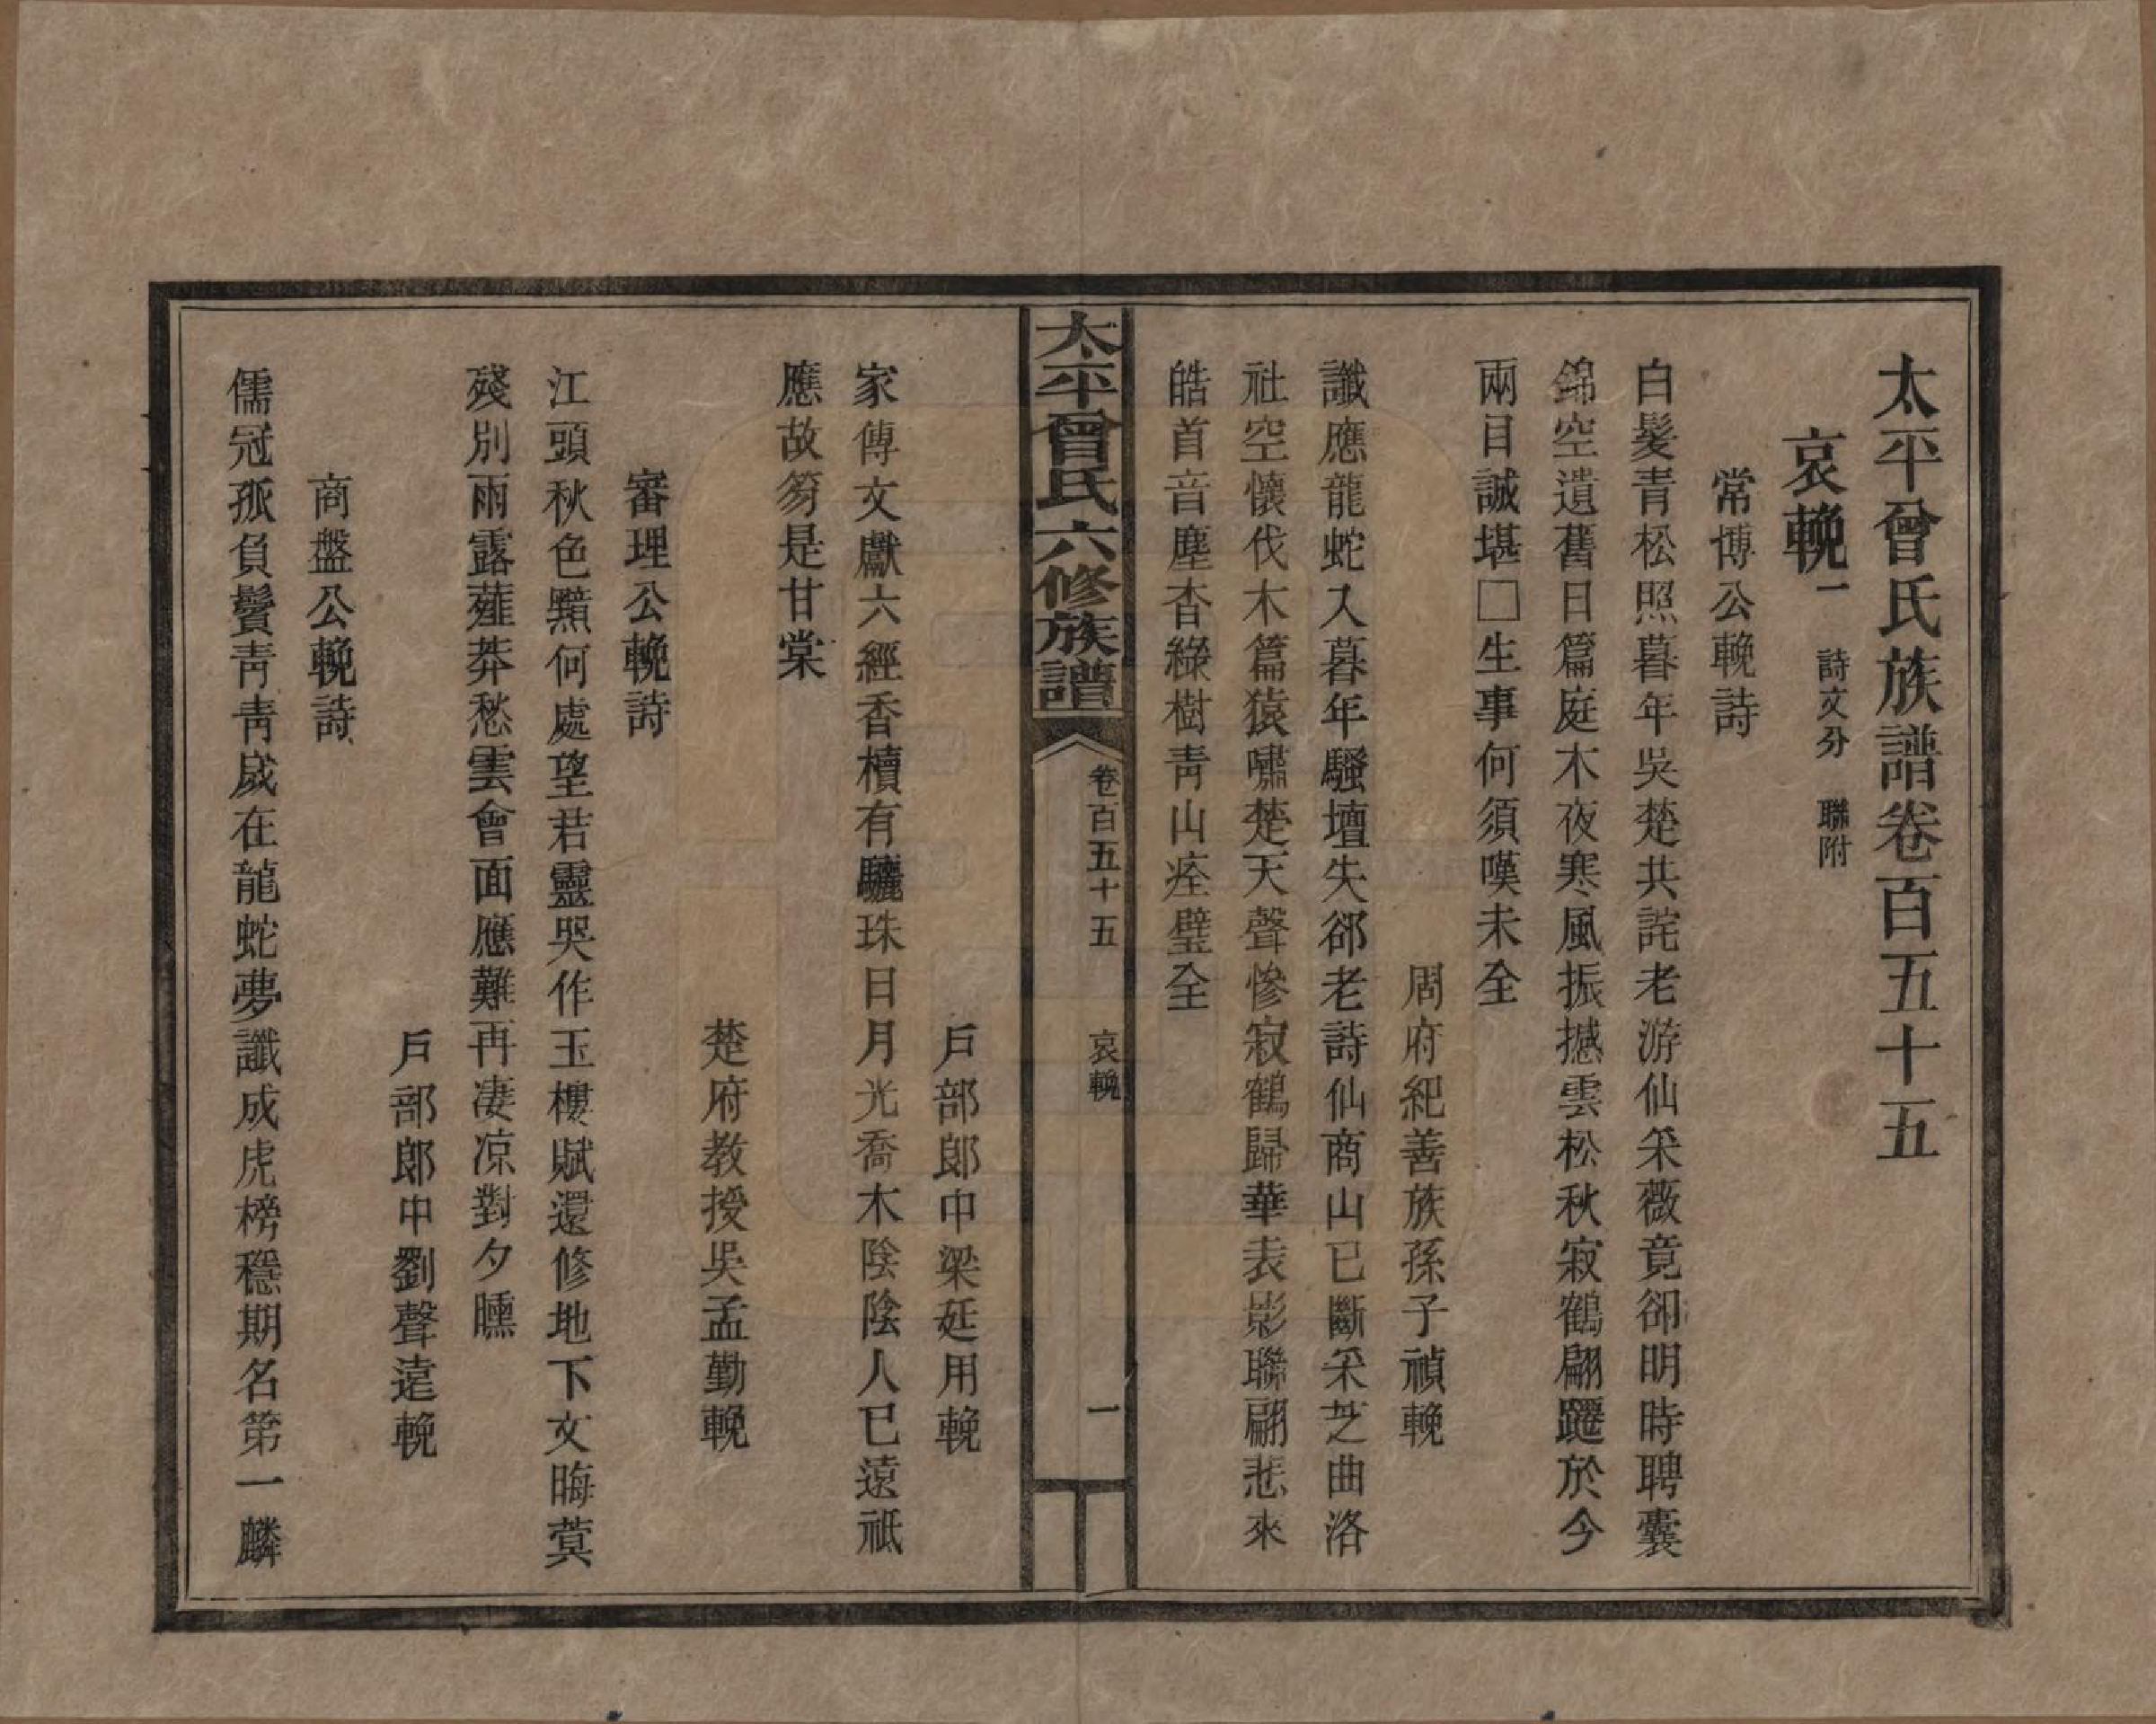 太平曾氏族譜卷百五十五
哀輓一 詩文分 聯附
常博公輓詩
白髮青松照暮年吳楚共詫老游仙采薇竟卻明時聘囊
錦空遺舊日篇庭木夜寒風振撼雲松秋寂鶴翩躚於今
兩目誠堪□生事何須嘆未全
周府紀善族孫子禎輓
讖應龍蛇入暮年騷壇失郤老詩仙商山已斷采芝曲洛
社空懷伐木篇猿嘯楚天聲慘寂鶴歸華表影聯翩悲來
皓首音塵杳綠樹青山痊璧全
太平曾氏六修族譜 卷百五十五 哀輓 一
戶部郎中梁廷用輓
家傳文獻六經香櫝有驪珠日月光喬木陰陰人已遠祇
應故笏是甘棠
楚府教授吳孟勤輓
審理公輓詩
江頭秋色黯何處望君靈哭作玉樓賦還修地下文晦蓂
殘別雨露薤莽愁雲會面應難再淒凉對夕曛
戶部郎中劉聲遠輓
商盤公輓詩
儒冠孤負鬢靑靑歲在龍蛇夢讖成虎榜穩期名第一麟